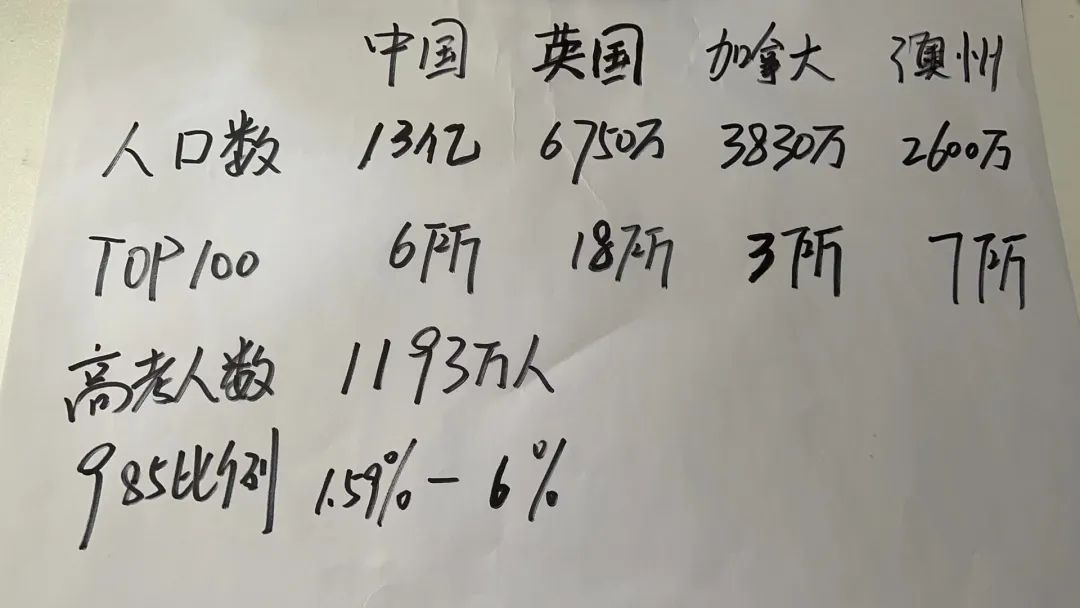 中国 英国 加拿大 澳州
人口数 13亿 6750万 3830万 2600万
TOP100 6所 18所 3所 7所
高考人数 1193万人
985比例 1.59% - 6%